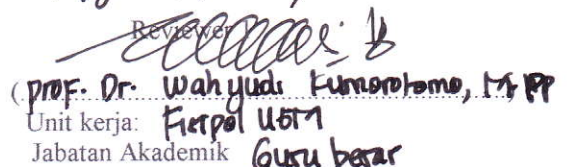 Reviewer
(prof. Dr. Wahyudi Kumorotomo, M.PP
Unit kerja: Fisipol UGM
Jabatan Akademik Guru besar